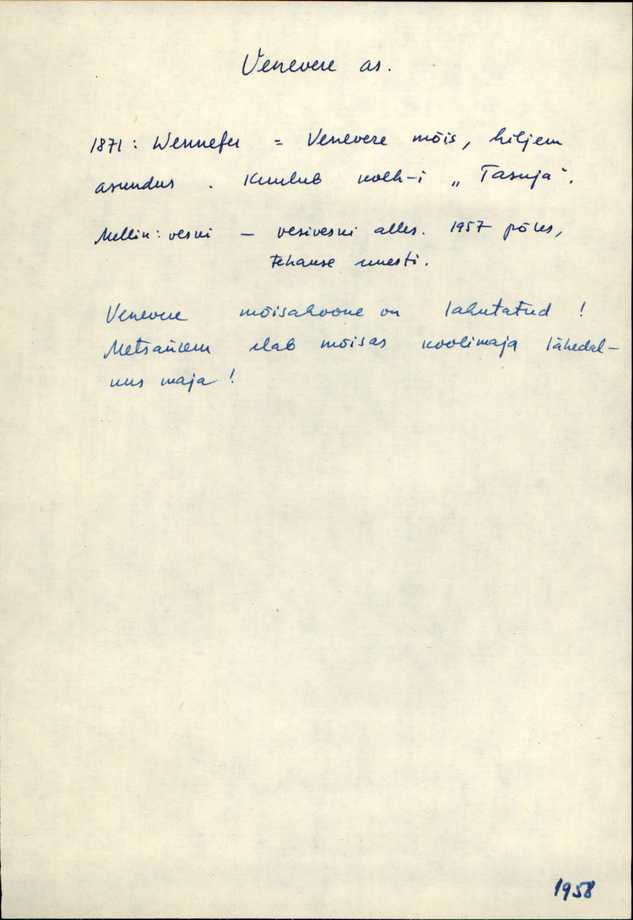 Venevere as.
1871: Wennefer = Venevere mõis, hiljem
asundus. Kuulub kolh-i „Tasuja".
Mellin: veski – vesiveski alles. 1957 põles,
tehakse uuesti.
Venevere mõisahoone on lahutatud!
elab mõisas koolimaja lähedal –
uus maja!
1958